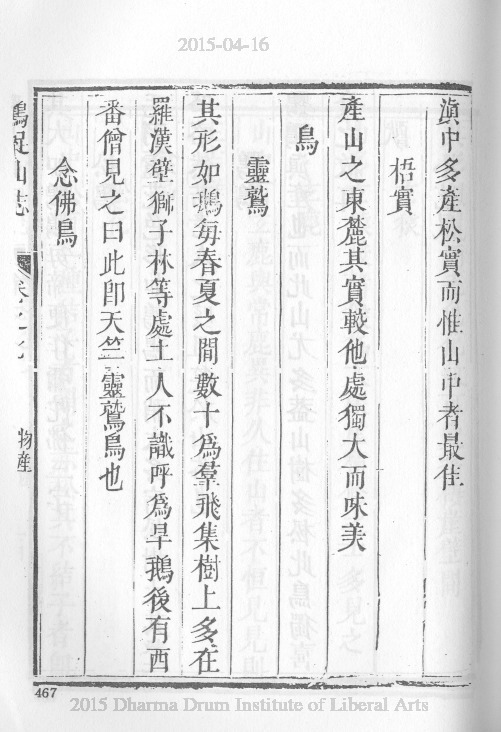 2015-04-16
滇中多產松實而惟山中者最佳
梧實
產山之東麓其實較他處獨大而味美
鳥
靈鷲
其形如鵝每春夏之間數十為羣飛集樹上多在
羅漢壁獅子林等處土人不識呼為旱鵝後有西
番僧見之曰此卽天竺靈鷲鳥也
念佛鳥
雞足山志
卷之九
物產
467
2015 Dharma Drum Institute of Liberal Arts